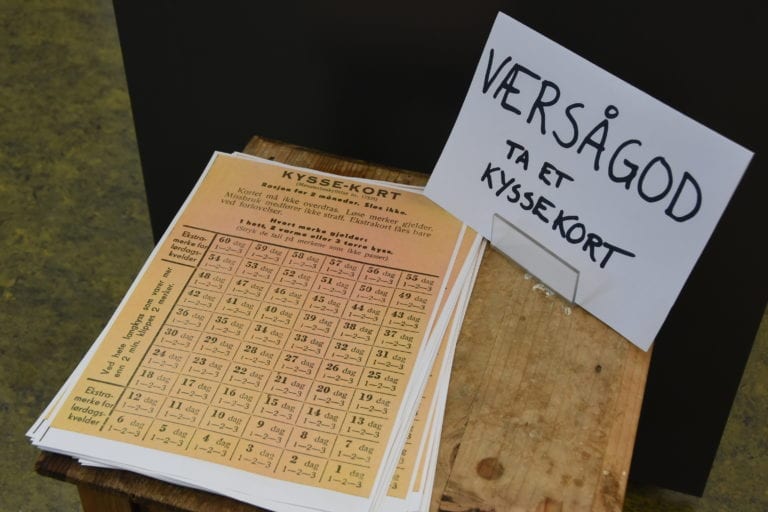 VÆRSÅGOD
TA ET
KYSSEKORT
KYSSE-KORT
Rasjon for 2 måneder. Slos ikke.
Kortet må ikke overdras. Løse merker gjelder.
Misbruk medfører ikke straff. Ekstrakort fåes bare
ved forlovelser.
Hvert merke gjelder:
1 hett, 2 varme eller 3 tørre kyss.
(Stryk de tall på merkene som ikke passer)
Ekstra-
merke for
lørdags-
kvelder
Ved hete langkyss som varer mer
enn 2 min. klippes 2 merker.
Ekstra-
merke for
lørdags-
kvelder
60 dag 59 dag 58 dag 57 dag 56 dag 55 dag
1—2—3 1—2—3 1—2—3 1—2—3 1—2—3 1—2—3
54 dag 53 dag 52 dag 51 dag 50 dag 49 dag
1—2—3 1—2—3 1—2—3 1—2—3 1—2—3 1—2—3
48 dag 47 dag 46 dag 45 dag 44 dag 43 dag
1—2—3 1—2—3 1—2—3 1—2—3 1—2—3 1—2—3
42 dag 41 dag 40 dag 39 dag 38 dag 37 dag
1—2—3 1—2—3 1—2—3 1—2—3 1—2—3 1—2—3
36 dag 35 dag 34 dag 33 dag 32 dag 31 dag
1—2—3 1—2—3 1—2—3 1—2—3 1—2—3 1—2—3
30 dag 29 dag 28 dag 27 dag 26 dag 25 dag
1—2—3 1—2—3 1—2—3 1—2—3 1—2—3 1—2—3
24 dag 23 dag 22 dag 21 dag 20 dag 19 dag
1—2—3 1—2—3 1—2—3 1—2—3 1—2—3 1—2—3
18 dag 17 dag 16 dag 15 dag 14 dag 13 dag
1—2—3 1—2—3 1—2—3 1—2—3 1—2—3 1—2—3
12 dag 11 dag 10 dag 9 dag 8 dag 7 dag
1—2—3 1—2—3 1—2—3 1—2—3 1—2—3 1—2—3
6 dag 5 dag 4 dag 3 dag 2 dag 1 dag
1—2—3 1—2—3 1—2—3 1—2—3 1—2—3 1—2—3